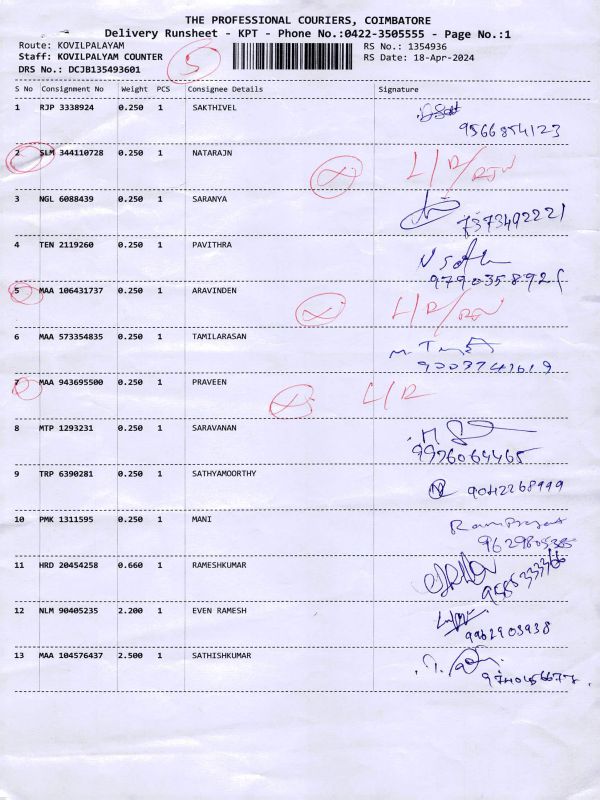 THE PROFESSIONAL COURIERS, COIMBATORE
Delivery Runsheet - KPT - Phone No.:0422-3505555 - Page No.:1
Route: KOVILPALAYAM
RS No.: 1354936
Staff: KOVILPALYAM COUNTER
RS Date: 18-Apr-2024
DRS No.: DCJB135493601
5
S No Consignment No Weight PCS Consignee Details Signature
1 RJP 3338924 0.250 1 SAKTHIVEL
9566854123
2 SLM 344110728 0.250 1 NATARAJN
3 NGL 6088439 0.250 1 SARANYA
7373492221
4 TEN 2119260 0.250 1 PAVITHRA
5 MAA 106431737 0.250 1 ARAVINDEN
6 MAA 573354835 0.250 1 TAMILARASAN
7 MAA 943695500 0.250 1 PRAVEEN
8 MTP 1293231 0.250 1 SARAVANAN
9 TRP 6390281 0.250 1 SATHYAMOORTHY
9042268999
10 PMK 1311595 0.250 1 MANI
11 HRD 20454258 0.660 1 RAMESHKUMAR
12 NLM 90405235 2.200 1 EVEN RAMESH
13 MAA 104576437 2.500 1 SATHISHKUMAR